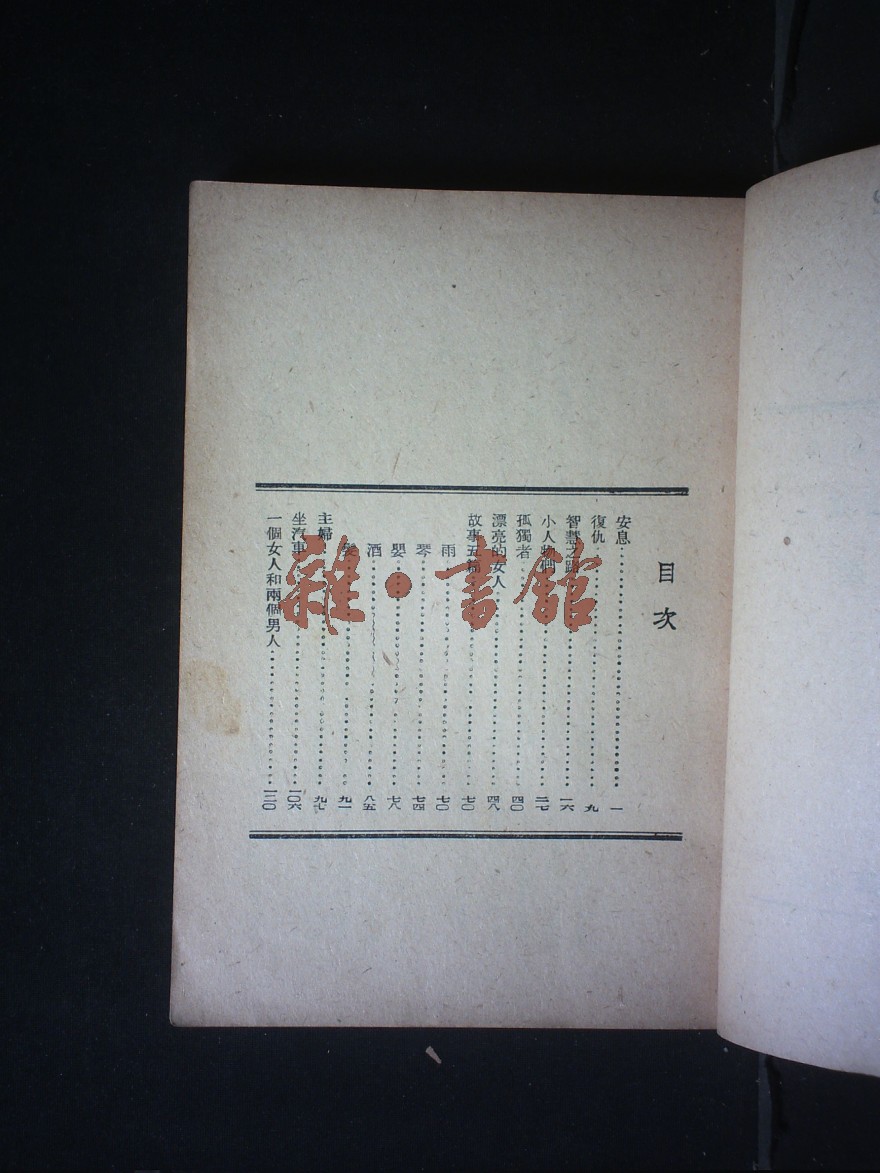 目次
安息……一
復仇……九
智慧之……一六
小人物們……二七
孤獨者……四〇
漂亮的女人……四八
故事五篇……七〇
雨……七〇
琴……七四
嬰……七八
酒……八五
……九一
主婦……九七
坐汽車……一〇六
一個女人和兩個男人……一二〇
雜·書館